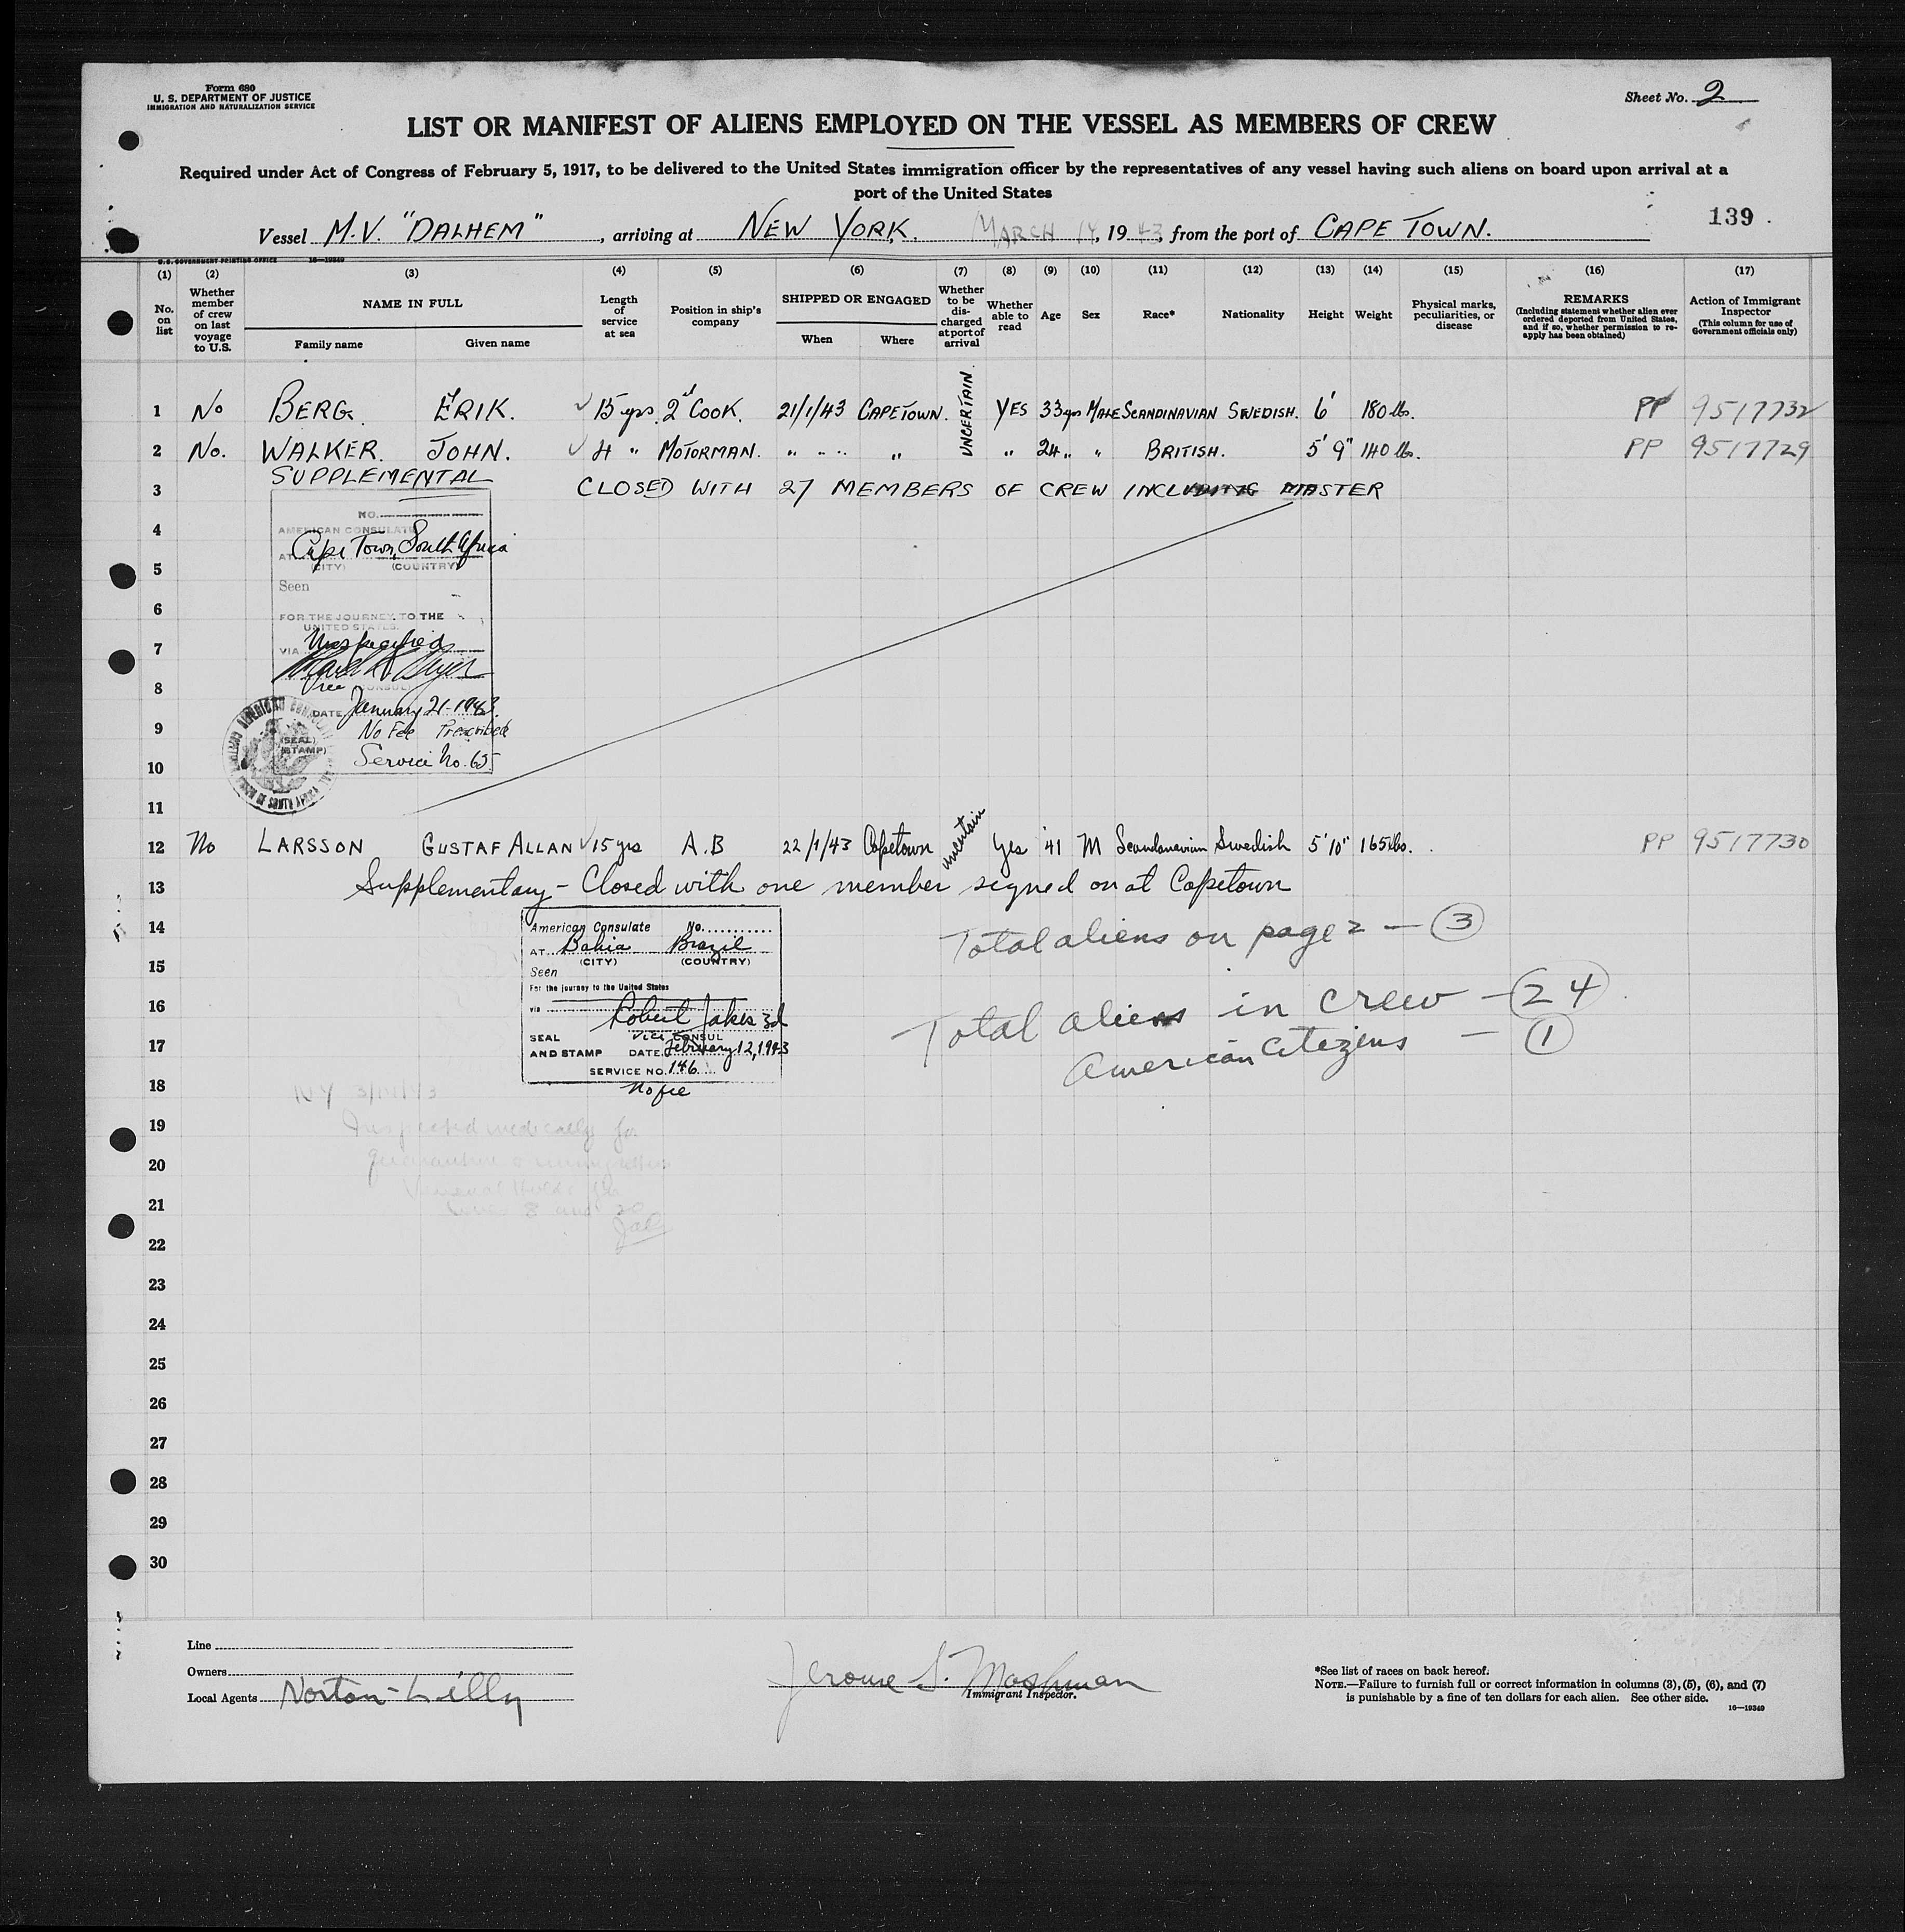 Form 680
U. S. DEPARTMENT OF JUSTICE
IMMIGRATION AND NATURALIZATION SERVICE
Sheet No. 2
LIST OR MANIFEST OF ALIENS EMPLOYED ON THE VESSEL AS MEMBERS OF CREW
Required under Act of Congress of February 5, 1917, to be delivered to the United States immigration officer by the representatives of any vessel having such aliens on board upon arrival at a
port of the United States
139
Vessel M.V. "DALHEM", arriving at NEW YORK. MARCH 14, 1943, from the port of CAPE TOWN.
U.S. GOVERNMENT PRINTING OFFICE 16—19349
(1) (2) (3) (4) (5) (6) (7) (8) (9) (10) (11) (12) (13) (14) (15) (16) (17)
No. on list
Whether member of crew on last voyage to U.S.
NAME IN FULL
Family name Given name
Length of service at sea
Position in ship's company
SHIPPED OR ENGAGED
When Where
Whether to be discharged at port of arrival
Whether able to read
Age
Sex
Race*
Nationality
Height
Weight
Physical marks, peculiarities, or disease
REMARKS
(Including statement whether alien ever ordered deported from United States, and if so, whether permission to re-apply has been obtained)
Action of Immigrant Inspector
(This column for use of Government officials only)
1 No BERG. ERIK. ✓ 15 yrs. 2d COOK. 21/1/43 CAPETOWN. UNCERTAIN. YES 33 yrs MALE SCANDINAVIAN SWEDISH. 6' 180 lbs. PP 9517732
2 No. WALKER. JOHN. ✓ 4 " MOTORMAN. " " " " " 24 " " BRITISH. 5' 9" 140 lbs. PP 9517729
SUPPLEMENTAL
3 CLOSED WITH 27 MEMBERS OF CREW INCLUDING MASTER
NO.
4 AMERICAN CONSULATE
AT Cape Town, South Africa
(CITY) (COUNTRY)
5
Seen
6
FOR THE JOURNEY TO THE
UNITED STATES.
7 VIA Unspecified
8
DATE January 21-1943.
9 No Fee Prescribed
(SEAL)
(STAMP)
Service No. 65
10
11
12 No LARSSON GUSTAF ALLAN ✓ 15 yrs A.B 22/1/43 Capetown uncertain Yes 41 M Scandanavian Swedish 5'10" 165 lbs. PP 9517730
13 Supplementary - Closed with one member signed on at Capetown
14 American Consulate No.
Total aliens on page 2 — 3
AT Bahia Brazil
(CITY) (COUNTRY)
15 Seen
For the journey to the United States
16 via
Total aliens in crew — 24
SEAL VICE CONSUL
17 AND STAMP DATE February 12, 1943
American Citizens — 1
SERVICE NO. 146
18 No fee
19 Inspected medically for
20
21
22
23
24
25
26
27
28
29
30
Line
Owners
Local Agents Norton-Lilly
Immigrant Inspector.
*See list of races on back hereof.
NOTE.—Failure to furnish full or correct information in columns (3), (5), (6), and (7)
is punishable by a fine of ten dollars for each alien. See other side.
16—19349